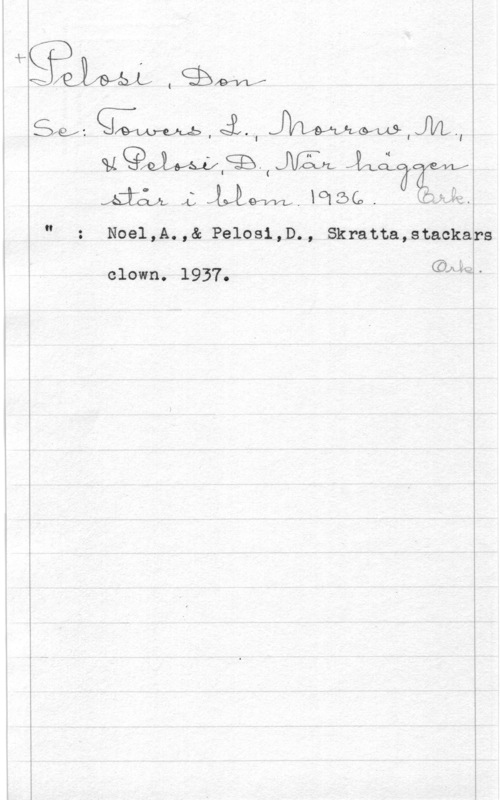 +Pelosi, Don
Se: Towers, L., Morrow, M.,
& Pelosi, D., När häggen
står i blom. 1936. Ork.
" : Noel,A.,& Pelosi,D., Skratta,stackars
clown. 1937. Ork.